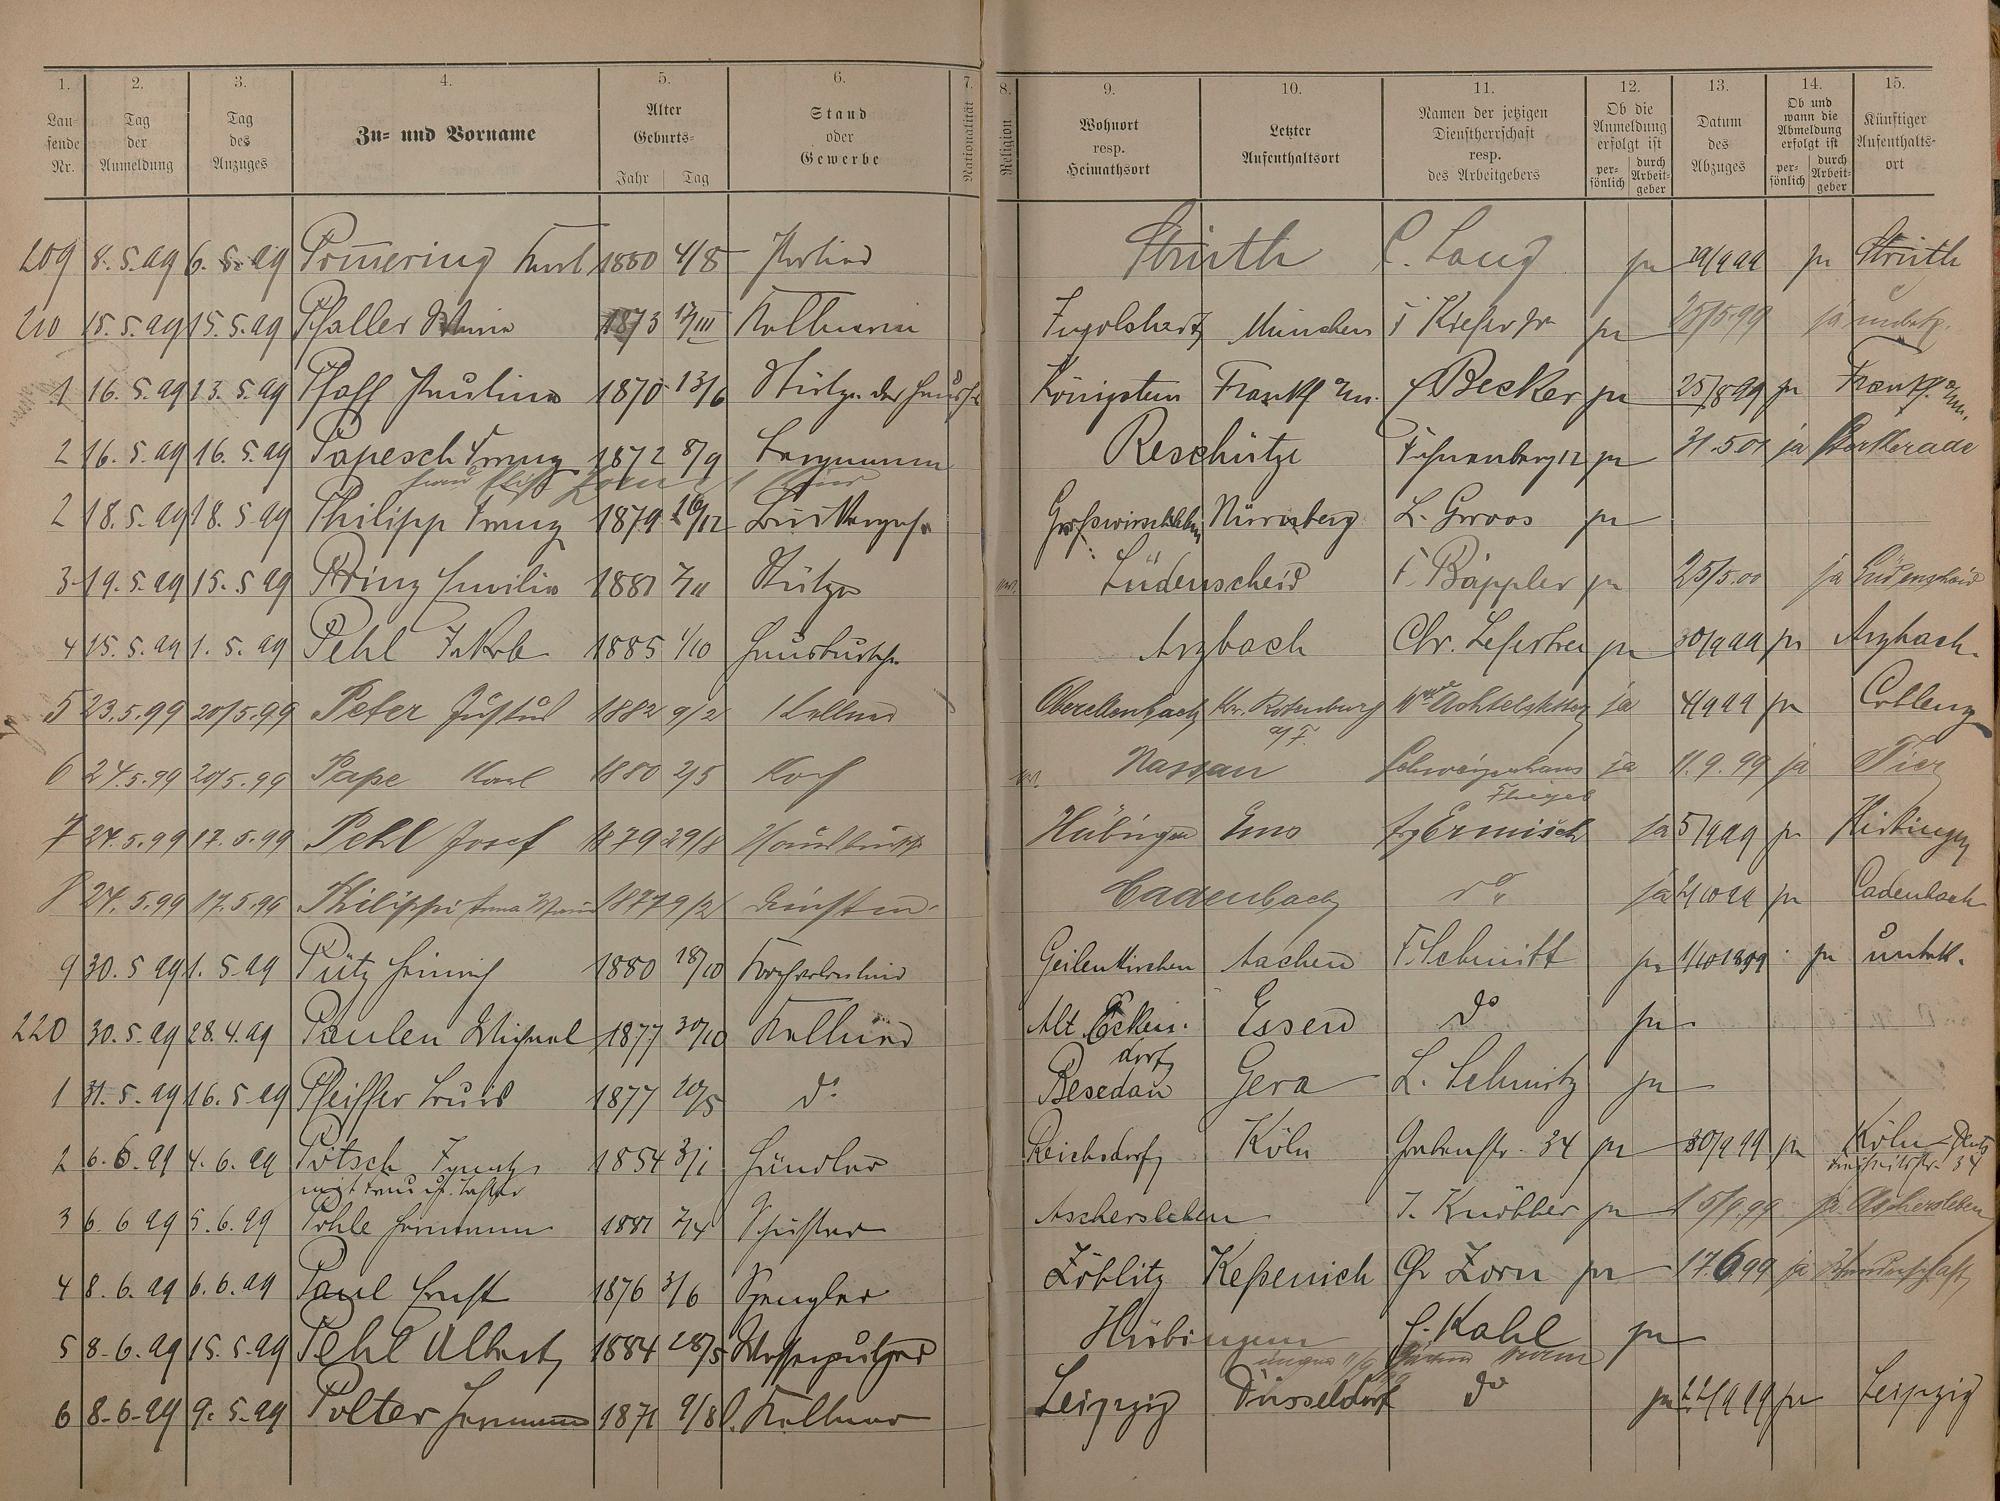 1. 2. 3. 4. 5. 6. 7. 8. 9. 10. 11. 12. 13. 14. 15.
Laufende Nr.
Tag der Anmeldung
Tag des Anzuges
Zu- und Vorname
Alter Geburts-
Jahr Tag
Stand oder Gewerbe
Nationalität
Religion
Wohnort resp. Heimathsort
Letzter Aufenthaltsort
Namen der jetzigen Dienstherrschaft resp. des Arbeitgebers
Ob die Anmeldung erfolgt ist
persönlich durch Arbeitgeber
Datum des Abzuges
Ob und wann die Abmeldung erfolgt ist
persönlich durch Arbeitgeber
Künftiger Aufenthaltsort
209 8.5.99 6.5.99 1880 4/8 Strüth C. Lang ja 29/9 99 ja Strüth
210 15.5.99 15.5.99 Pfaller 1873 Kellnerin München ja 25/5.99 ja unbek.
1 16.5.99 13.5.99 Pfaff Pauline 1870 13/6 Stütze der Hausfr. Königstein Frankf a/m. Becker ja 25/8 99 ja Frankf. a/m.
2 16.5.99 16.5.99 Papesch Franz 1872 8/9 Bergmann Reschütze ja 31.5 01 ja Sterkerade
2 18.5.99 18.5.99 Philipp Franz 1879 Nürnberg L. Groos ja
3 19.5.99 15.5.99 Prinz Emilie 1881 7/11 Stütze Lüdenscheid F. Bäppler ja 25/5.00 ja Lüdenscheid
4 15.5.99 1.5.99 Pehl Jakob 1885 1/10 Hausbursche Arzbach Chr. ja 30/9 99 ja Arzbach
5 23.5.99 20/5.99 Peter Justus 1882 9/2 Kellner Oberellenbach Kr. Rotenburg a/F. ja 4/9 99 ja Coblenz
6 24.5.99 20/5.99 Pape Karl 1880 2/5 Koch Nassau Schweizerhaus ja 11.9.99 ja
Fliegel
7 24.5.99 17.5.99 Pehl Josef 1879 29/8 Hausbursch Hübingen Ems Ermisch ja 5/9 99 ja
8 24.5.99 17.5.99 Philippi Anna Maria 1877 9/2 Cadenbach do ja 2/10 99 ja Cadenbach
9 30.5 99 1.5.99 Pütz Heinrich 1880 18/10 Geilenkirchen Aachen F. Schmitt ja 1/10 1899 ja unbek.
220 30.5.99 28.4.99 Paulen Michael 1877 30/10 Kellner Alt Eckendorf Essen do ja
1 31.5.99 16.5 99 Pfeiffer Louis 1877 20/5 do Besedau Gera L. Schmitz ja
2 6.6.99 4.6.99 Pötsch 1854 3/1 Händler Reichsdorf Köln Grabenstr. 34 ja 30/9 99 ja Köln-Deutz
mit Frau u. Tochter
3 6.6 99 5.6.99 Pohle Hermann 1881 7/4 Aschersleben J. Knöbber ja 15/9.99 ja Aschersleben
4 8.6.99 6.6.99 Paul Ernst 1876 3/6 Spengler Zöblitz Keßenich Ch Zorn ja 17.6 99 ja Wanderschaft
5 8.6.99 15.5.99 Pehl Albert 1884 28/5 Messerputzer Hübingen C. Kahl ja
6 8.6.99 9.5.99 Polter Hermann 1871 9/8 Kellner Leipzig Düsseldorf do ja 22/9 99 ja Leipzig